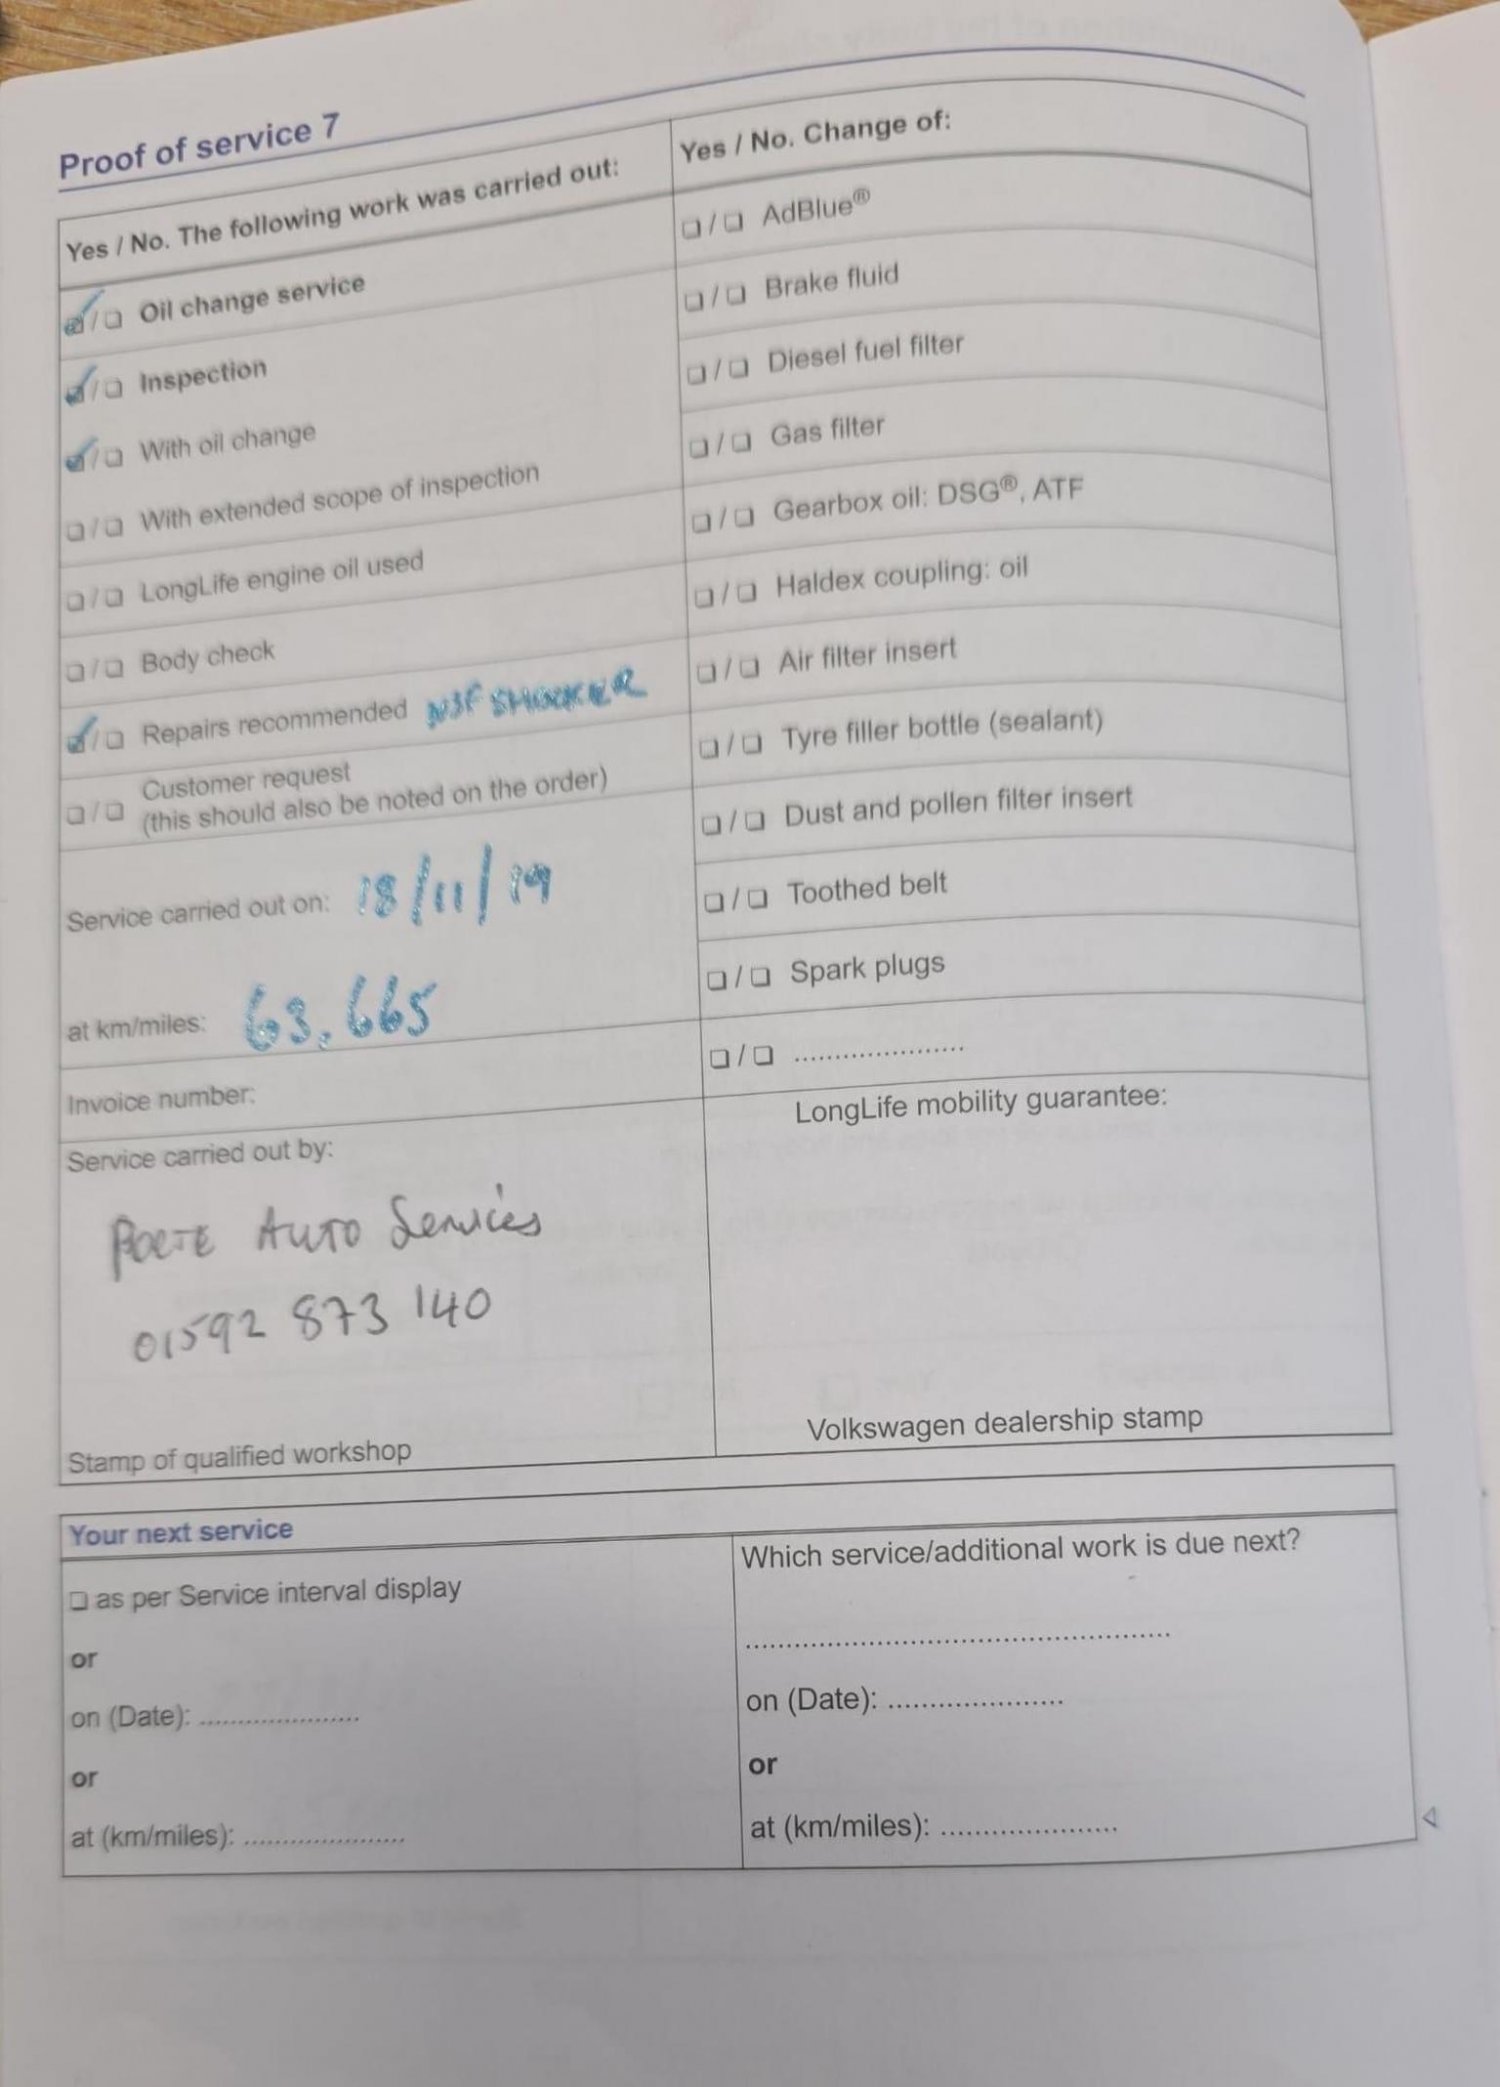 Proof of service 7
Yes / No. The following work was carried out:
❏ / ❏ Oil change service
❏ / ❏ Inspection
❏ / ❏ With oil change
❏ / ❏ With extended scope of inspection
❏ / ❏ LongLife engine oil used
❏ / ❏ Body check
❏ / ❏ Repairs recommended NSF SHOCKER
❏ / ❏ Customer request
(this should also be noted on the order)
Service carried out on: 18/11/19
at km/miles: 63,665
Invoice number:
Service carried out by:
Auto Services
01592 873 140
Stamp of qualified workshop
Yes / No. Change of:
❏ / ❏ AdBlue®
❏ / ❏ Brake fluid
❏ / ❏ Diesel fuel filter
❏ / ❏ Gas filter
❏ / ❏ Gearbox oil: DSG®, ATF
❏ / ❏ Haldex coupling: oil
❏ / ❏ Air filter insert
❏ / ❏ Tyre filler bottle (sealant)
❏ / ❏ Dust and pollen filter insert
❏ / ❏ Toothed belt
❏ / ❏ Spark plugs
❏ / ❏ .....................
LongLife mobility guarantee:
Volkswagen dealership stamp
Your next service
❏ as per Service interval display
or
on (Date): .....................
or
at (km/miles): .....................
Which service/additional work is due next?
.....................................................
on (Date): .....................
or
at (km/miles): .....................